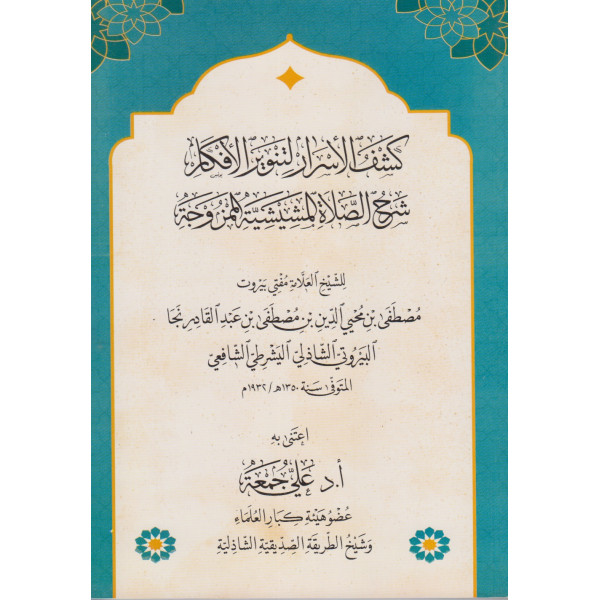 كَشْفُ الأَسْرَارِ لِتَنْوِيرِ الأَفْكَارِ
شَرْحُ الصَّلَاةِ المَشِيشِيَّةِ المَمْزُوجَةِ
لِلشَّيْخِ العَلَّامَةِ مُفْتِي بَيْرُوت
مُصْطَفَى بْنِ مُحْيِي الدِّينِ بْنِ مُصْطَفَى بْنِ عَبْدِ القَادِرِ نَجَا
البَيْرُوتِيِّ الشَّاذِلِيِّ اليَشْرُطِيِّ الشَّافِعِيِّ
المتوفى سنة ١٣٥٠هـ/١٩٣٢م
اعْتَنَى بِهِ
أ.د عَلِيّ جُمْعَة
عُضْوُ هَيْئَةِ كِبَارِ العُلَمَاءِ
وَشَيْخُ الطَّرِيقَةِ الصِّدِّيقِيَّةِ الشَّاذِلِيَّةِ